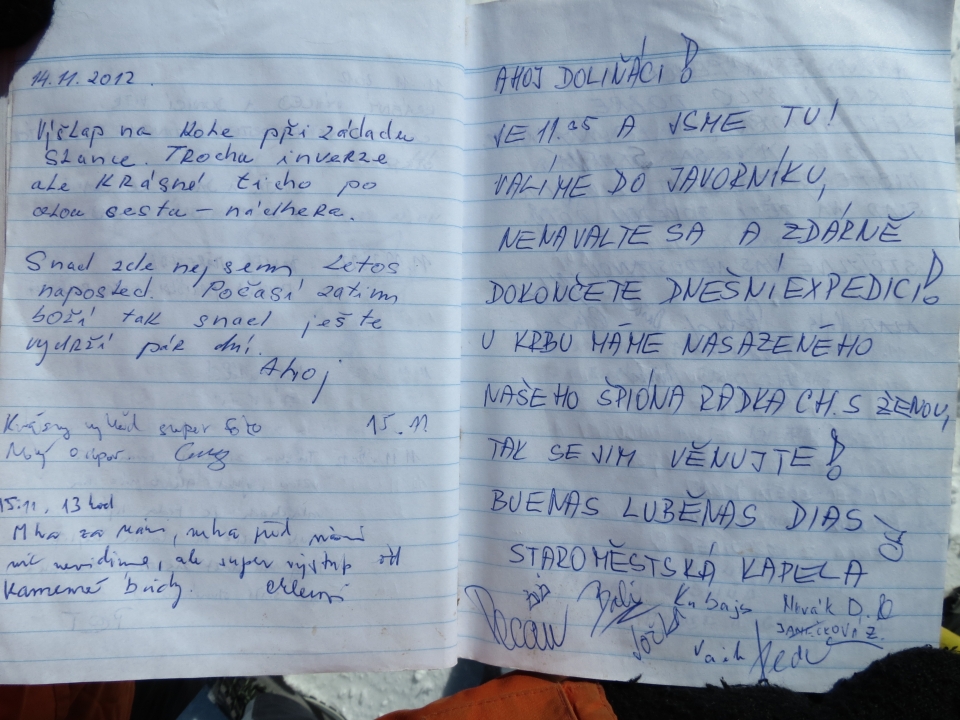 14.11.2012.
Výšlap na kole při západu
Slunce. Trochu inverze
ale KRÁSNÉ ticho po
celou cestu - nádhera.
Snad zde nejsem letos
naposled. Počasí zatím
boží tak snad ješte
vydrží pár dní.
Ahoj
Krásny výhled super foto 15.11
Nový
15.11, 13 hod
Mha za námi, mha před námi
nic nevidíme, ale super výstup
Kamenné
AHOJ DOLIŇÁCI!
JE 11.35 A JSME TU!
VALÍME DO JAVORNÍKU,
NENAVALTE SA A ZDÁRNĚ
DOKONČETE DNEŠNÍ EXPEDICI!
U KRBU MÁME NASAZENÉHO
NAŠEHO ŠPIÓNA RADKA CH. S ŽENOU,
TAK SE JIM VĚNUJTE!
BUENAS LUBĚNAS DIAS
STAROMĚSTSKÁ KAPELA
Kubajs Novák D.
JANÍČKOVÁ Z.